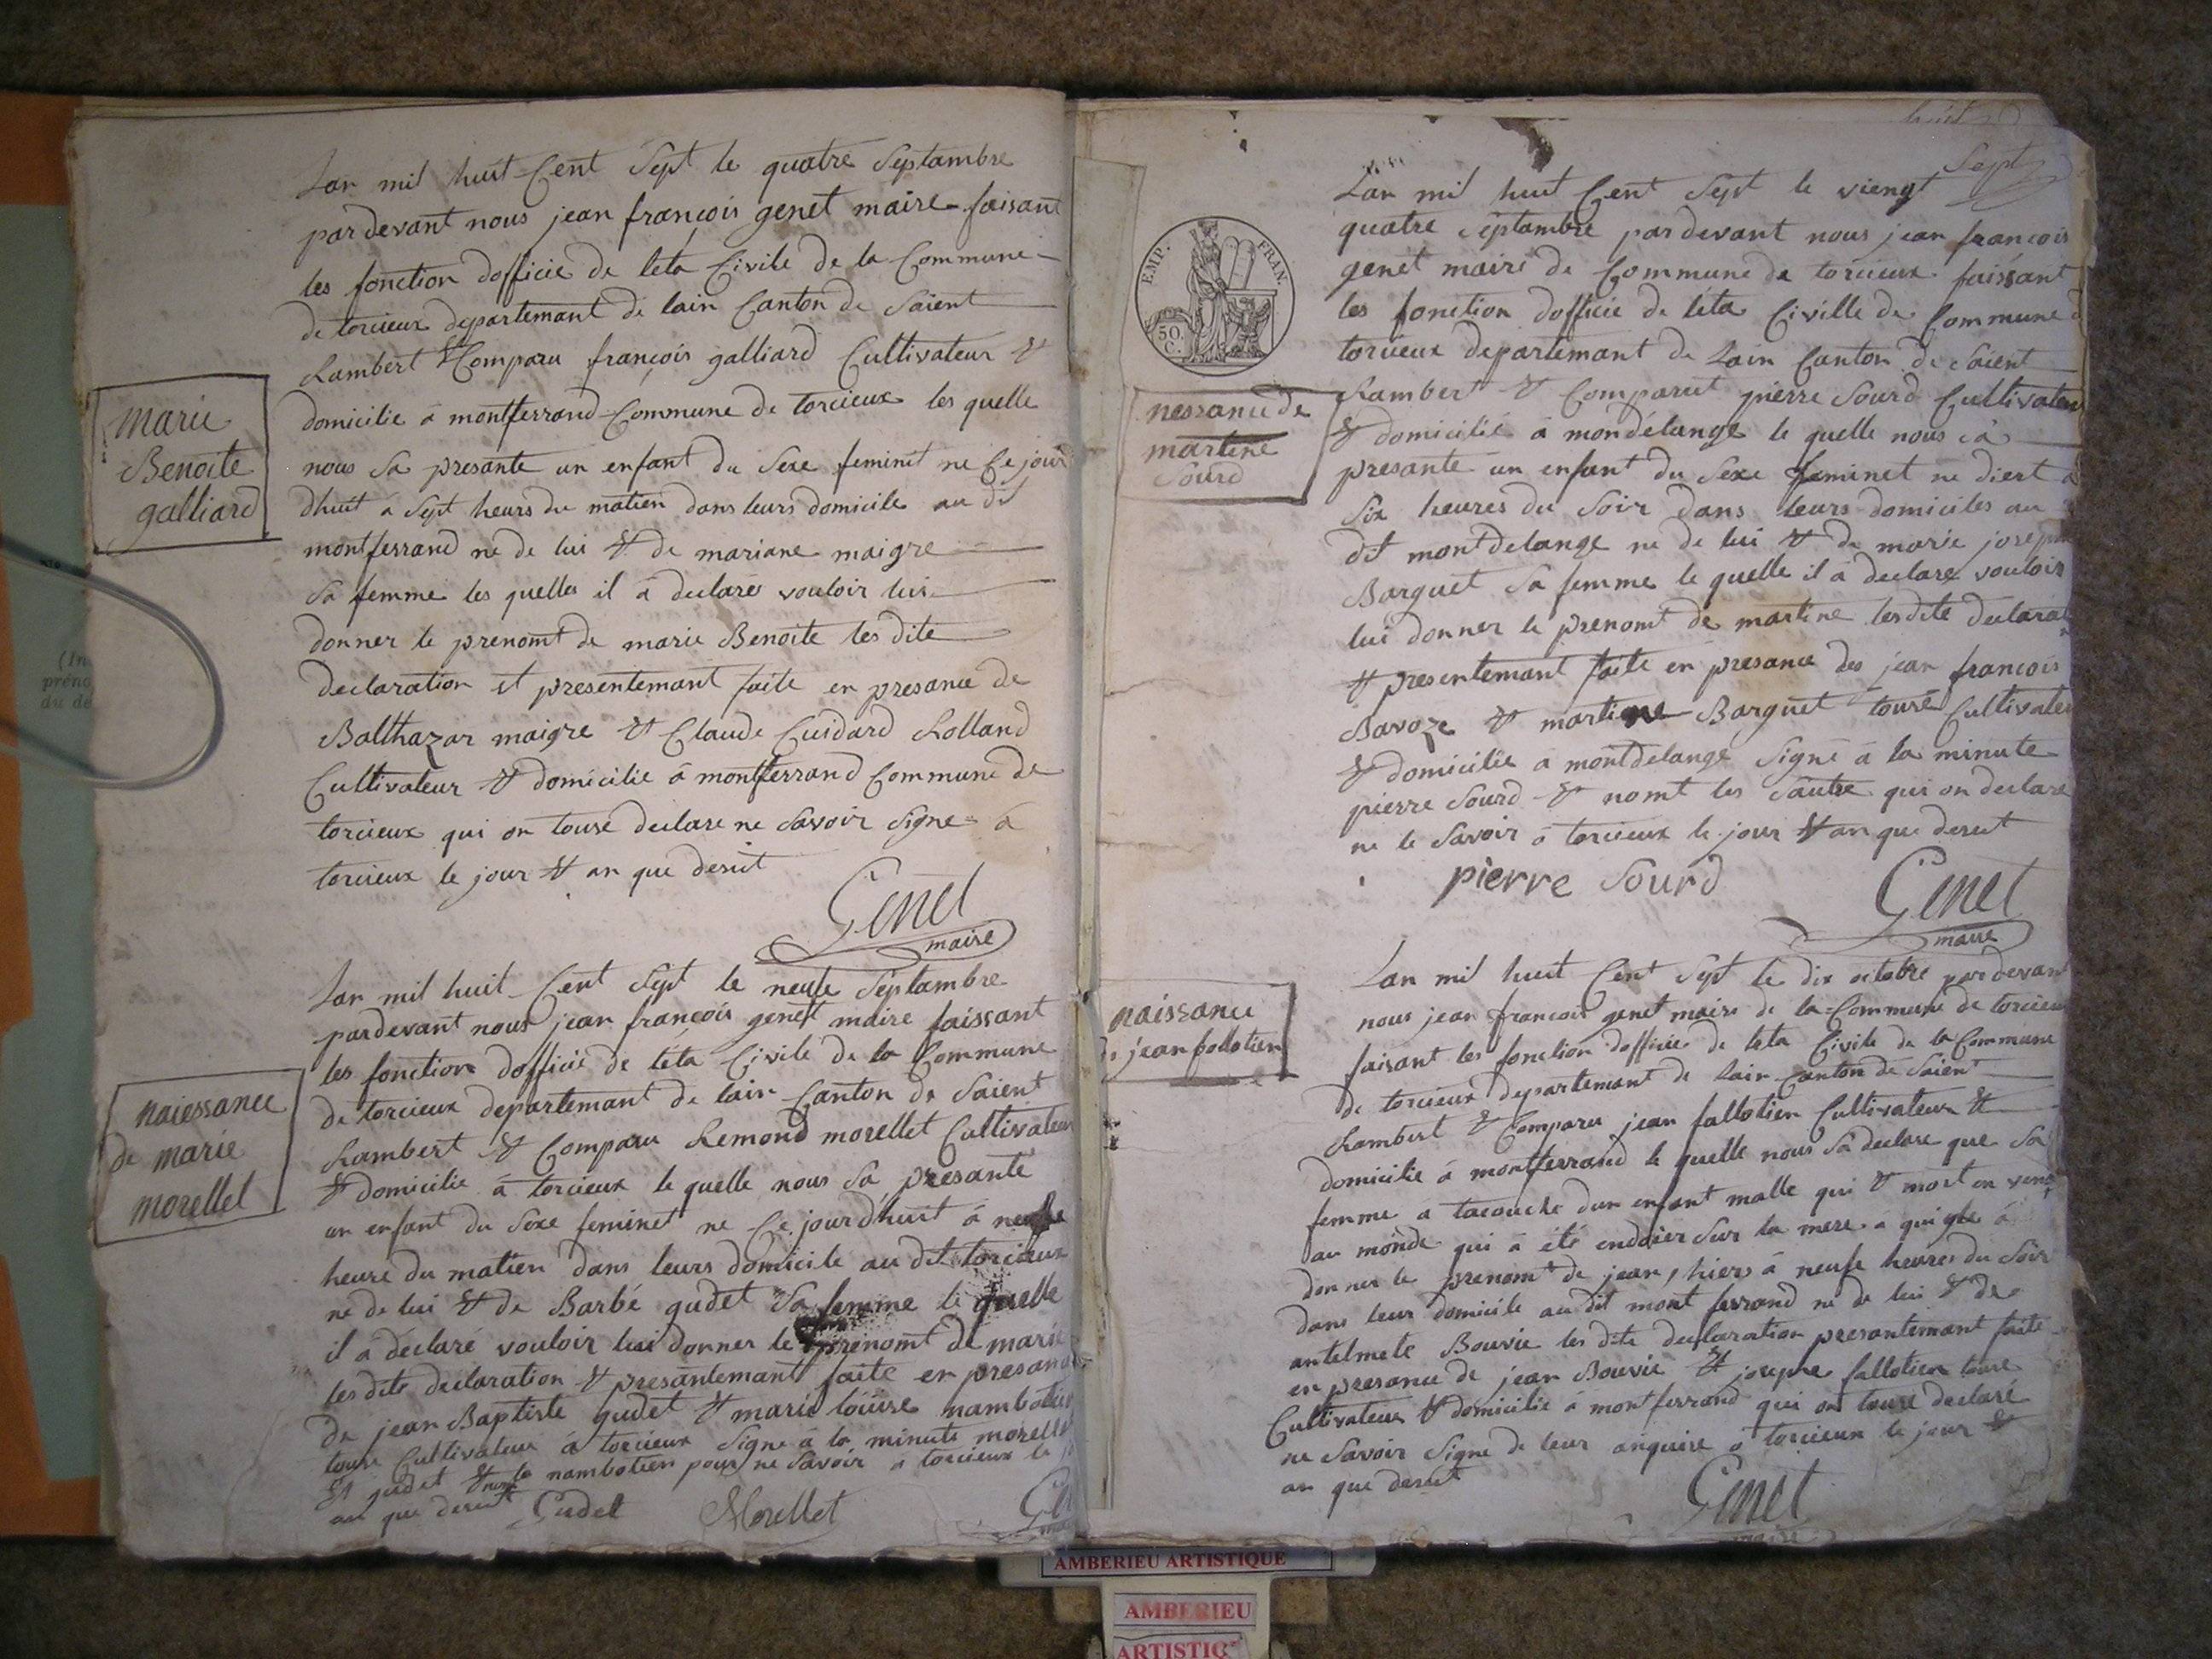 Lan mil huit Cent Sept le quatre Septambre
pardevant nous jean françois genet maire faisant
les fonction dofficie de léta Civile de la Commune
de torcieux departemant de lain Canton de Saient
Rambert & Comparu françois galliard Cultivateur &
domicilie à montferrand Commune de torcieux les quelle
nous sa presante un enfant du Sexe feminit ne Ce jour
dhuit a Sept heurs du matien dans leurs domicile au dit
montferrand ne de lui & de mariane maigre
sa femme les quelles il à declaré vouloir lui
donner le prenomt de marie Benoite les dite
declaration et presentemant faite en presance de
Balthazar maigre & Claude Cuidard Rolland
Cultivateur & domicilie à montferrand Commune de
torcieux qui on touse declare ne Savoir Signe a
torcieux le jour & an que desuit
Genet
maire
marie
Benoite
galliard
Lan mil huit Cent Sept le neufe Septambre
pardevant nous jean françois genet maire faissant
les fonction dofficié de léta Civile de la Commune
de torcieux departemant de lain Canton de Saient
Rambert & Comparu Remond morellet Cultivateur
& domicilie à torcieux le quelle nous Sa presante
un enfant du Sexe feminet ne Ce jourdhuit à neufe
heure du matien dans leurs domicile au dit torcieux
ne de lui & de Barbé gudet Sa femme le quelle
il a déclaré vouloir lui donner le prenomt de marie
les dite declaration & presantemant faite en presance
de jean Baptiste gudet & marie loüise nambotien
touse Cultivateur à torcieux Signe à la minute morellet
Et gudet & nomt la nambotien pour ne Savoir a torcieux le
an que desuit Gudet Morellet
naiessance
de marie
morellet
huit
Sept
Lan mil huit Cent Sept le viengt
quatre Septambre pardevant nous jean françois
genet maire de Commune de torcieux faissant
les fonction dofficie de léta Civille de Commune d
torcieux departemant de Lain Canton de Saient
Rambert & Comparut pierre Sourd Cultivateur
& domicilié à mondélange le quelle nous sà
presante un enfant du Sexe feminet ne diert à
Six heures du Soir dans leurs domiciles au
dit montdelange ne de lui & de marie joseph
Barguet Sa femme le quelle il à declare vouloir
lui donner le prenomt de martine lesdite declarat
& presentemant faite en presance des jean françois
Bavoze & martine Barguet touse Cultivateur
& domicilie à montdelange Signe à la minute
pierre Sourd & nomt les Sautre qui on declare
ne le Savoir à torcieux le jour & an que desuit
pierre Sourd
Genet
maire
EMP. FRAN.
50 C.
nessance de
martine
Sourd
Lan mil huit Cent Sept le dix octobre pardevant
nous jean françois genet maire de la Commune de torcieux
faisant les fonction dofficie de leta Civile de la Commune
de torcieux departemant de lain Canton de Saient
Rambert & Comparu jean fallotien Cultivateur &
domicilie à montferrand le quelle nous Sa declare que Sa
femme a tacouche dun enfant malle qui & mort en venant
au mönde qui à été endoier Sur la mere a qui gle à
donner le prenomt de jean, hiers à neufe heures du Soir
dans leur domicile au dit mont ferrand ne de lui & de
antelmete Bouvie les dite declaration presantemant faite
en presance de jean Bouvie & josepne fallotien touse
Cultivateur & domicilie à montferrand qui on touse declaré
ne Savoir Signe de leur anquise à torcieux le jour &
an que desuit
Genet
maire
naissance
de jean follotien
AMBERIEU ARTISTIQUE
AMBERIEU
ARTISTIQ